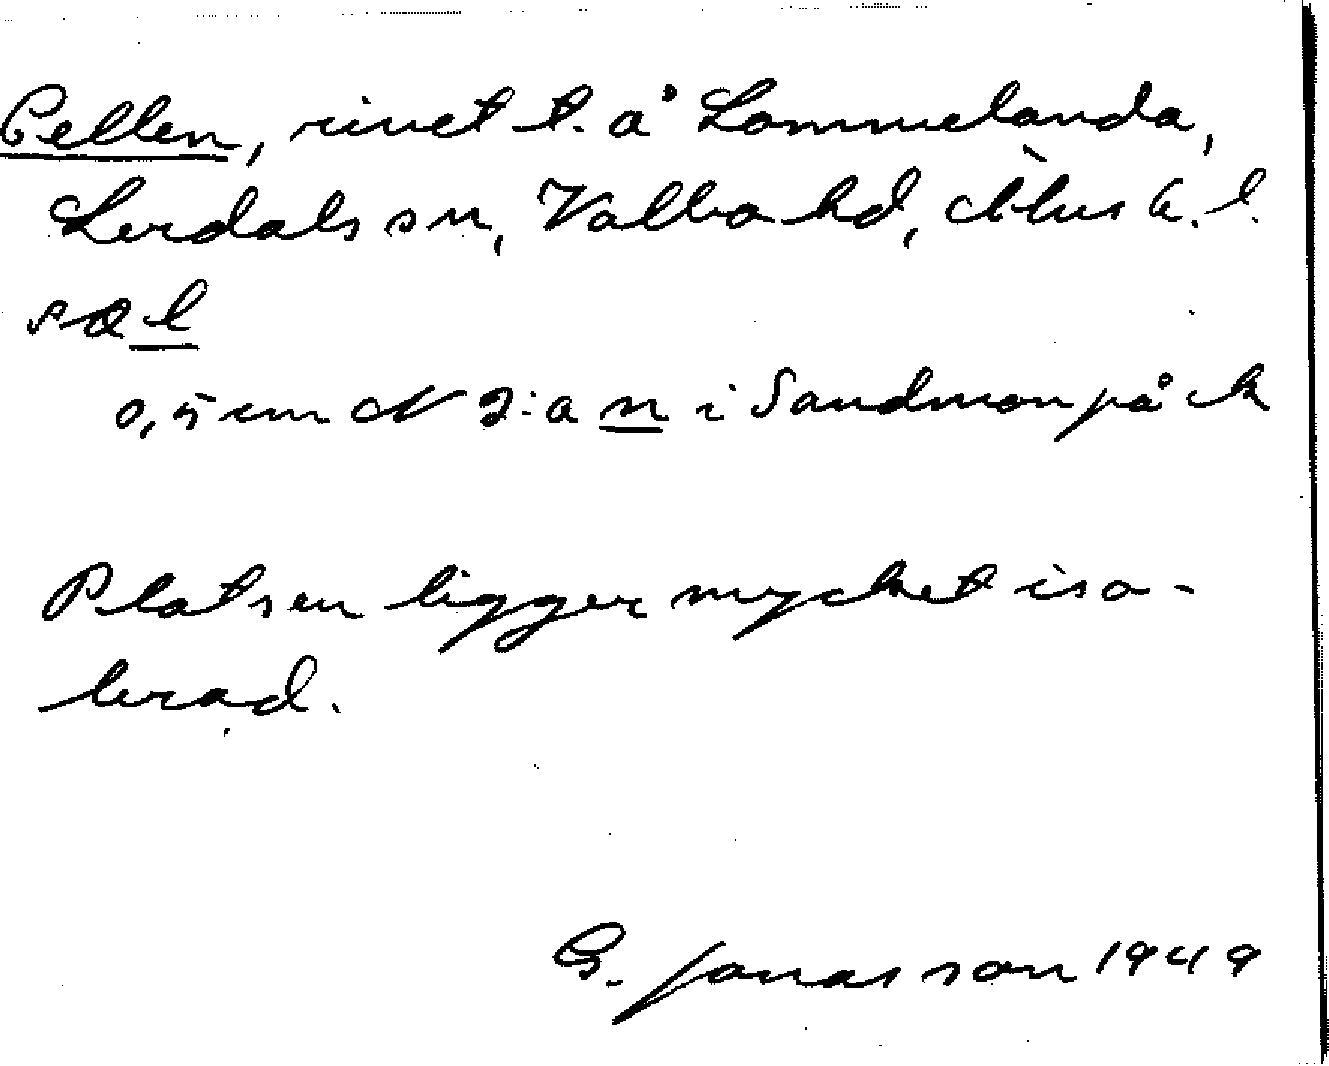 Pellen, rivet t. å Lommelanda,
Lerdals sn, Valbo hd, Älvsb. l.
sal
0,5 cm N 2:a n i Sandmon på ek
Platsen ligger mycket iso-
lerad.
G. Jonasson 1949